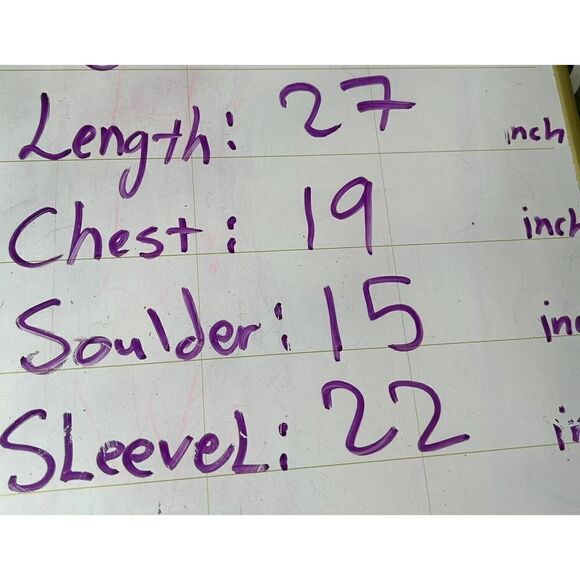 Length: 27 inch
Chest: 19 inch
Soulder: 15 inc
SLeeveL: 22 in